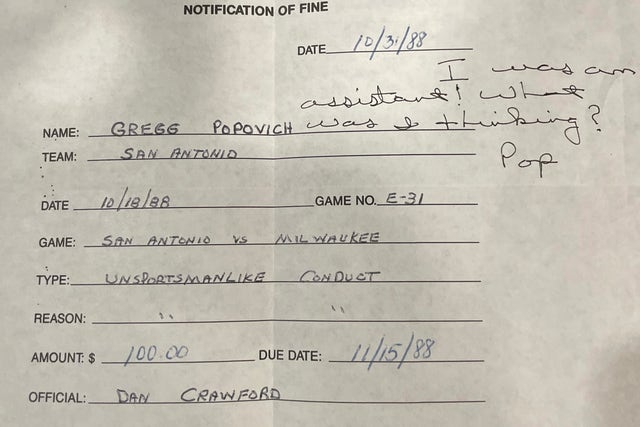 NOTIFICATION OF FINE
DATE 10/31/88
I was an
assistant! What
was I thinking?
Pop
NAME: GREGG POPOVICH
TEAM: SAN ANTONIO
DATE 10/18/88 GAME NO. E-31
GAME: SAN ANTONIO VS MILWAUKEE
TYPE: UNSPORTSMANLIKE CONDUCT
REASON: " "
AMOUNT: $ 100.00 DUE DATE: 11/15/88
OFFICIAL: DAN CRAWFORD